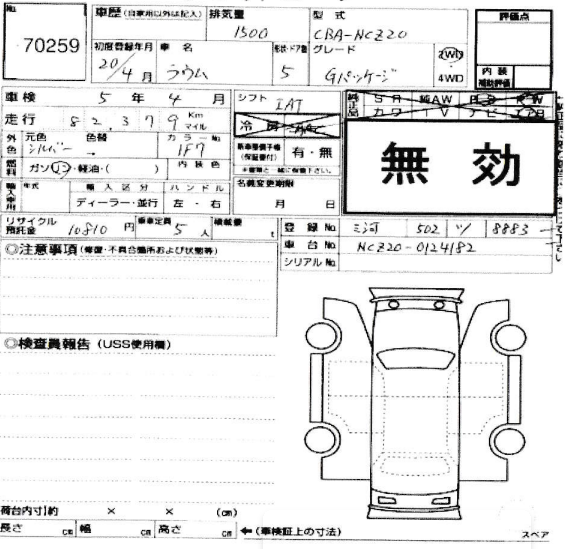 No. 70259
車歴 (自家用以外は記入)
排気量 1500
型式 CBA-NCZ20
評価点
初度登録年月 20/4月
車名 ラウム
形状・ドア数 5
グレード Gパッケージ
2WD・4WD
内装補助評価
車検 5年4月
シフト IAT
純正品 SR 純AW PS PW
カワ TV ナビ エアB
走行 82,379 Km マイル
冷房 AAC
外色 元色 シルバー 色替
カラーNo. 1F7
新車整備手帳(保証書付) 有・無
※書類と一緒に保管下さい。
無効
燃料 ガソリン・軽油・( )
内装色
名義変更期限 月 日
輸入車用 年式
輸入区分 ディーラー・並行
ハンドル 左・右
リサイクル預託金 10810円
乗車定員 5人
積載量 t
登録No. 三河 502 ソ 8883
車台No. NCZ20-0124182
シリアルNo.
◎注意事項 (修復・不具合箇所および状態等)
◎検査員報告 (USS使用欄)
荷台内寸 約 × × (cm)
長さ cm 幅 cm 高さ cm ←(車検証上の寸法)
スペア